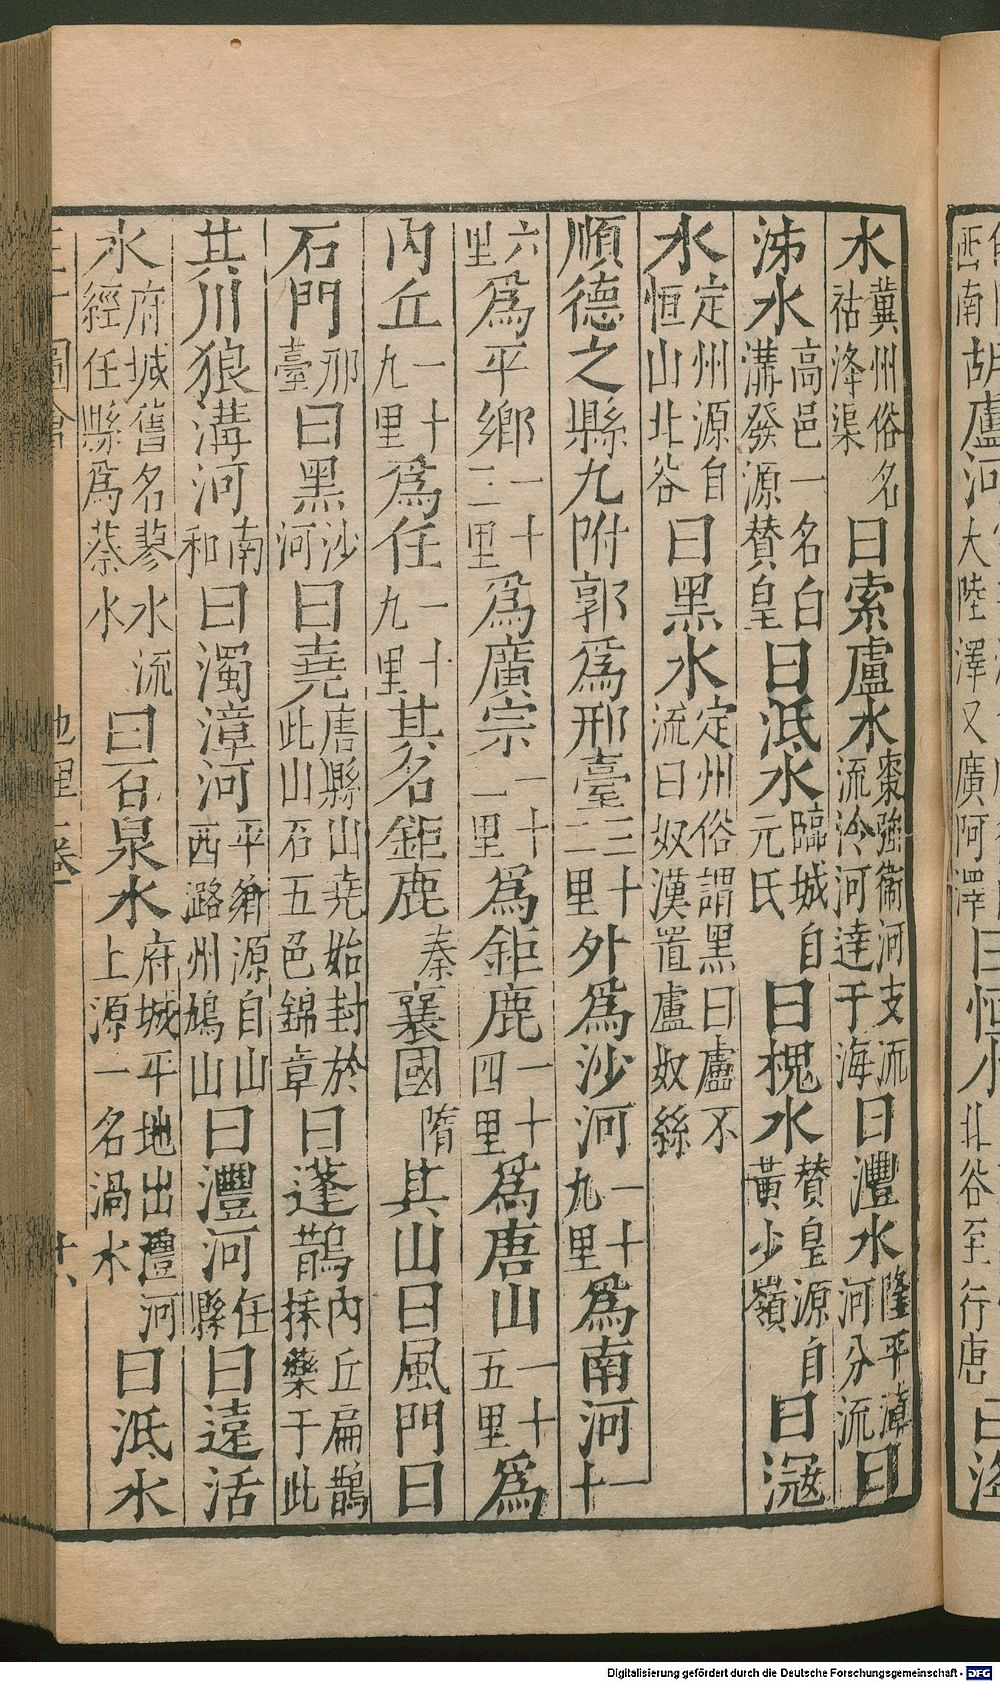 水冀州俗名祜洚渠曰索盧水棗強衛河支流流泠河達于海曰灃水隆平漳河分流曰
泲水高邑一名白溝發源贊皇曰泜水臨城自元氏曰槐水贊皇源自黃少嶺曰
水定州源自恒山北谷曰黑水定州俗謂黑曰盧不流曰奴漢置盧奴縣
順德之縣九附郭爲邢臺三十二里外爲沙河一十九里爲南河一十
六里爲平鄉一十二里爲廣宗一十一里爲鉅鹿一十四里爲唐山一十五里爲
內丘一十九里爲任一十九里其名鉅鹿秦襄國隋其山曰風門曰
石門邢臺曰黑沙河曰堯唐縣山堯始封於此山石五色錦章曰蓬鵲內丘扁鵲採藥于此
其川狼溝河南和曰濁漳河平鄉源自山西潞州鳩山曰灃河任縣曰遠活
水府城舊名蓼水流經任縣爲蔡水曰百泉水府城平地出灃河上源一名渦水曰泜水
三才圖會 地理二卷 十六
胡盧河大陸澤又廣阿澤曰恒水北谷至行唐曰
西南
Digitalisierung gefördert durch die Deutsche Forschungsgemeinschaft - DFG